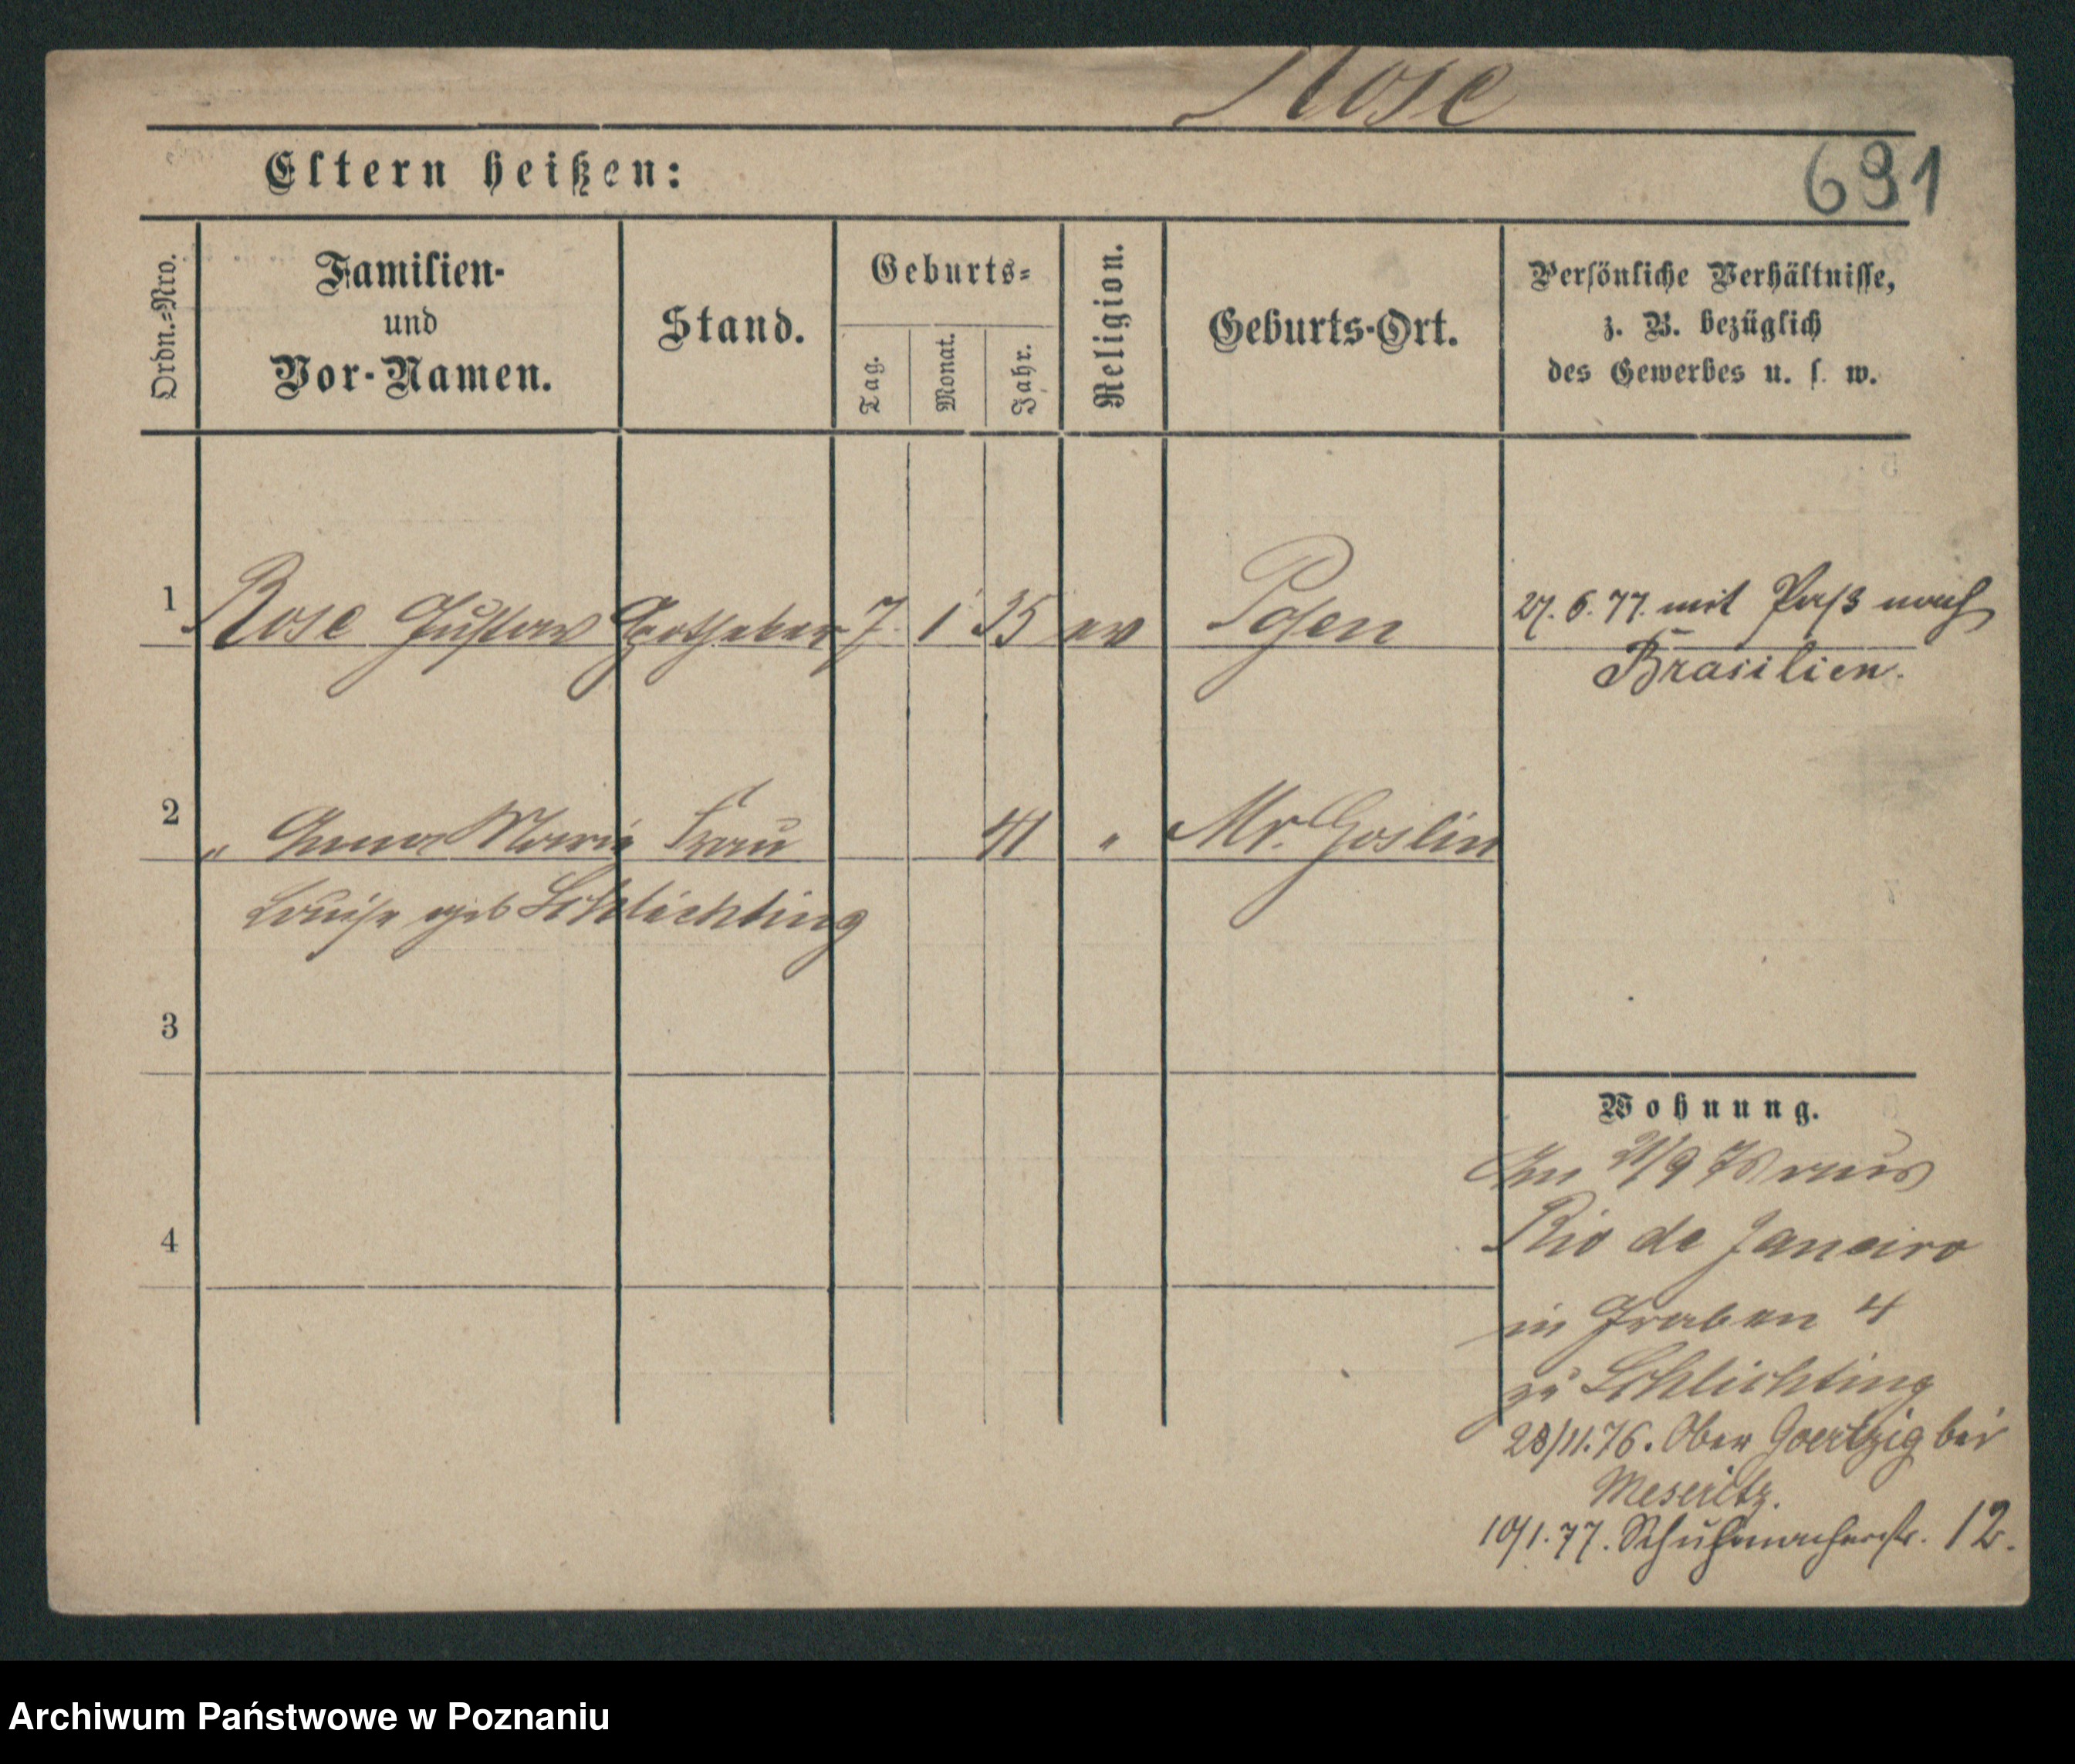 Rose
Eltern heißen:
691
Ordn.-Nro.
Familien-
und
Vor-Namen.
Stand.
Geburts-
Tag.
Monat.
Jahr.
Religion.
Geburts-Ort.
Persönliche Verhältnisse,
z. B. bezüglich
des Gewerbes u. s. w.
1 Rose Gustav Apotheker 7. 1 35 ev Posen 27. 6. 77. mit Paß nach
Brasilien.
2 " Anna Marie Frau 41 " Mr. Goslin
Louise geb Schlichting
3
Wohnung.
An 21/9 76 aus
4
Rio de Janeiro
in Graben 4
zu Schlichting
28/11.76. Ober Goertzig bei
Meseritz.
10/1.77. Schuhmacherstr. 12.
Archiwum Państwowe w Poznaniu